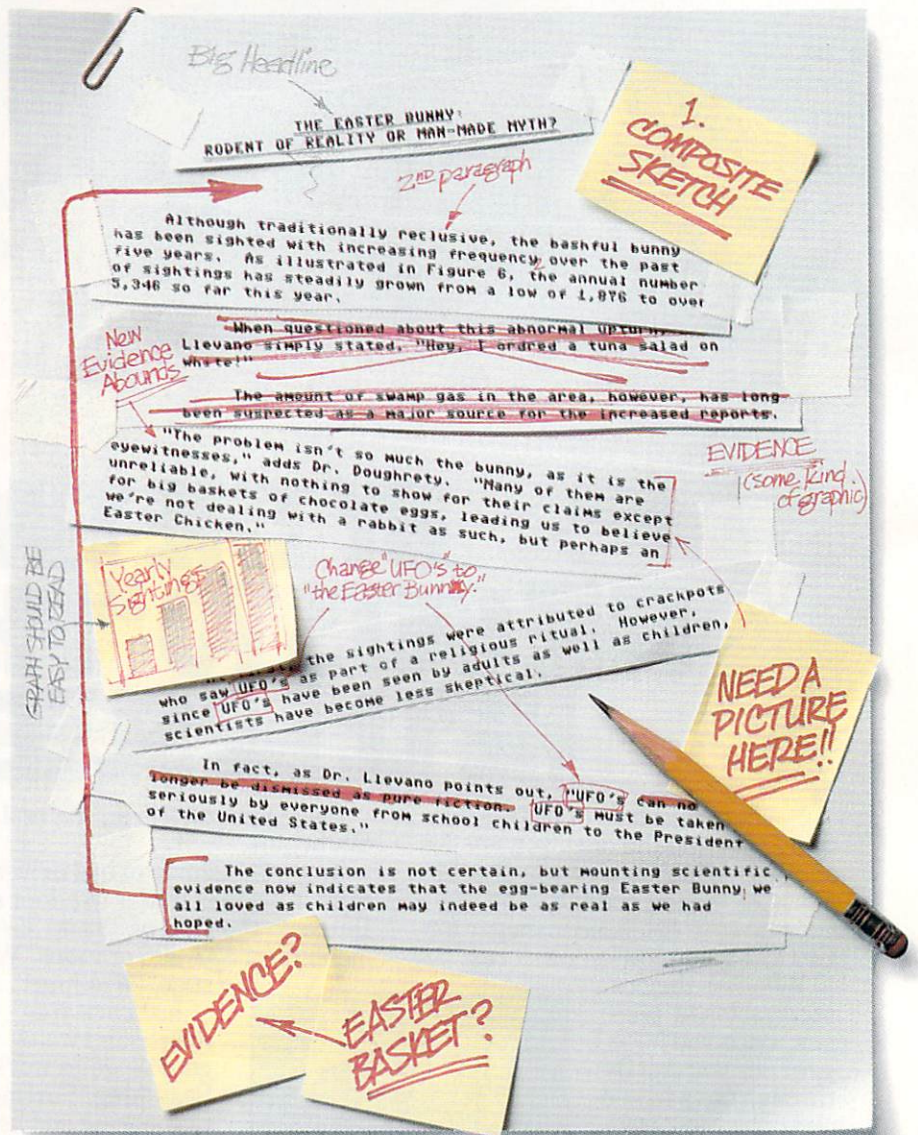 Big Headline
THE EASTER BUNNY:
RODENT OF REALITY OR MAN-MADE MYTH?
1.
COMPOSITE
SKETCH
2ND paragraph
Although traditionally reclusive, the bashful bunny
has been sighted with increasing frequency over the past
five years. As illustrated in Figure 6, the annual number
of sightings has steadily grown from a low of 1,876 to over
5,346 so far this year.
When questioned about this abnormal upturn,
Llevano simply stated, "Hey, I ordred a tuna salad on
whate!"
New
Evidence
Abounds
The amount of swamp gas in the area, however, has long
been suspected as a major source for the increased reports.
"The problem isn't so much the bunny, as it is the
eyewitnesses," adds Dr. Doughrety. "Many of them are
unreliable, with nothing to show for their claims except
for big baskets of chocolate eggs, leading us to believe
we're not dealing with a rabbit as such, but perhaps an
Easter Chicken."
EVIDENCE
(some kind
of graphic)
GRAPH SHOULD BE
EASY TO READ
Yearly
Sightings
Change "UFO's" to
"the Easter Bunny."
the sightings were attributed to crackpots
who saw UFO's as part of a religious ritual. However,
since UFO's have been seen by adults as well as children,
scientists have become less skeptical.
NEED A
PICTURE
HERE!!
In fact, as Dr. Llevano points out, "UFO's can no
longer be dismissed as pure fiction. UFO's must be taken
seriously by everyone from school children to the President
of the United States."
The conclusion is not certain, but mounting scientific
evidence now indicates that the egg-bearing Easter Bunny we
all loved as children may indeed be as real as we had
hoped.
EVIDENCE?
EASTER
BASKET?